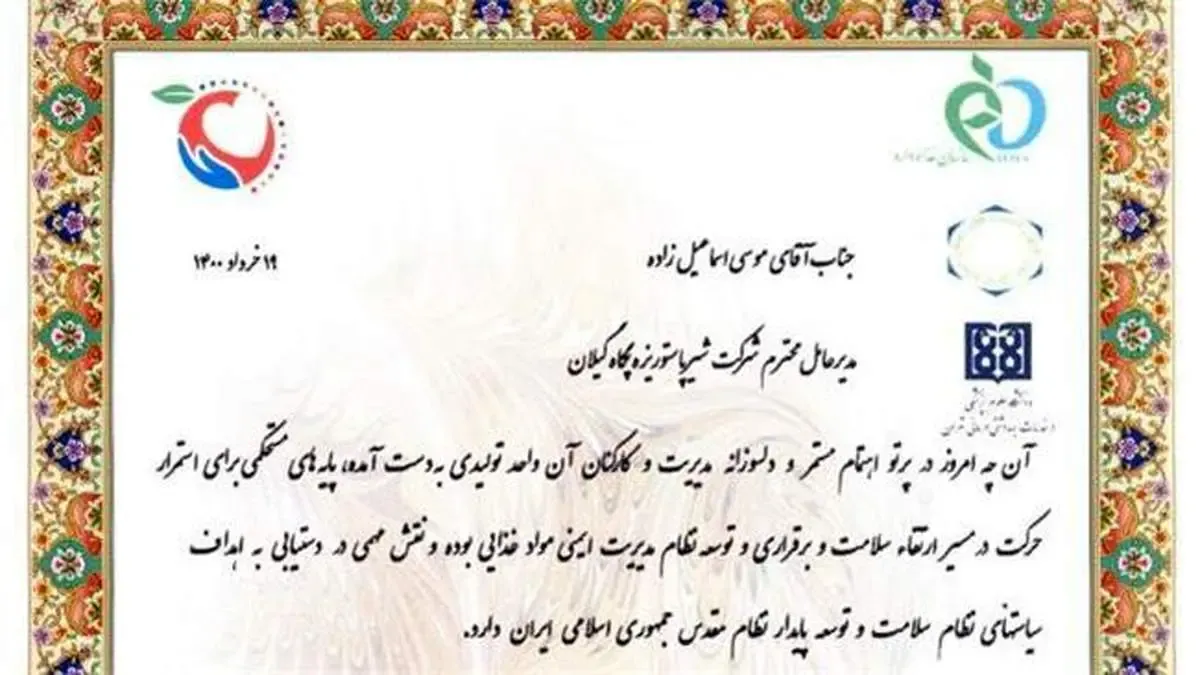 سازمان غذا و دارو
۱۹ خرداد ۱۴۰۰
جناب آقای موسی اسماعیل زاده
مدیرعامل محترم شرکت شیر پاستوریزه پگاه گیلان
دانشگاه علوم پزشکی
و خدمات بهداشتی درمانی تهران
آن چه امروز در پرتو اهتمام مستمر و دلسوزانه مدیریت و کارکنان آن واحد تولیدی به‌دست آمده، پایه‌های مستحکمی برای استمرار
حرکت در مسیر ارتقاء سلامت و برقراری و توسعه نظام مدیریت ایمنی مواد غذایی بوده و نقش مهمی در دستیابی به اهداف
سیاستهای نظام سلامت و توسعه پایدار نظام مقدس جمهوری اسلامی ایران دارد.